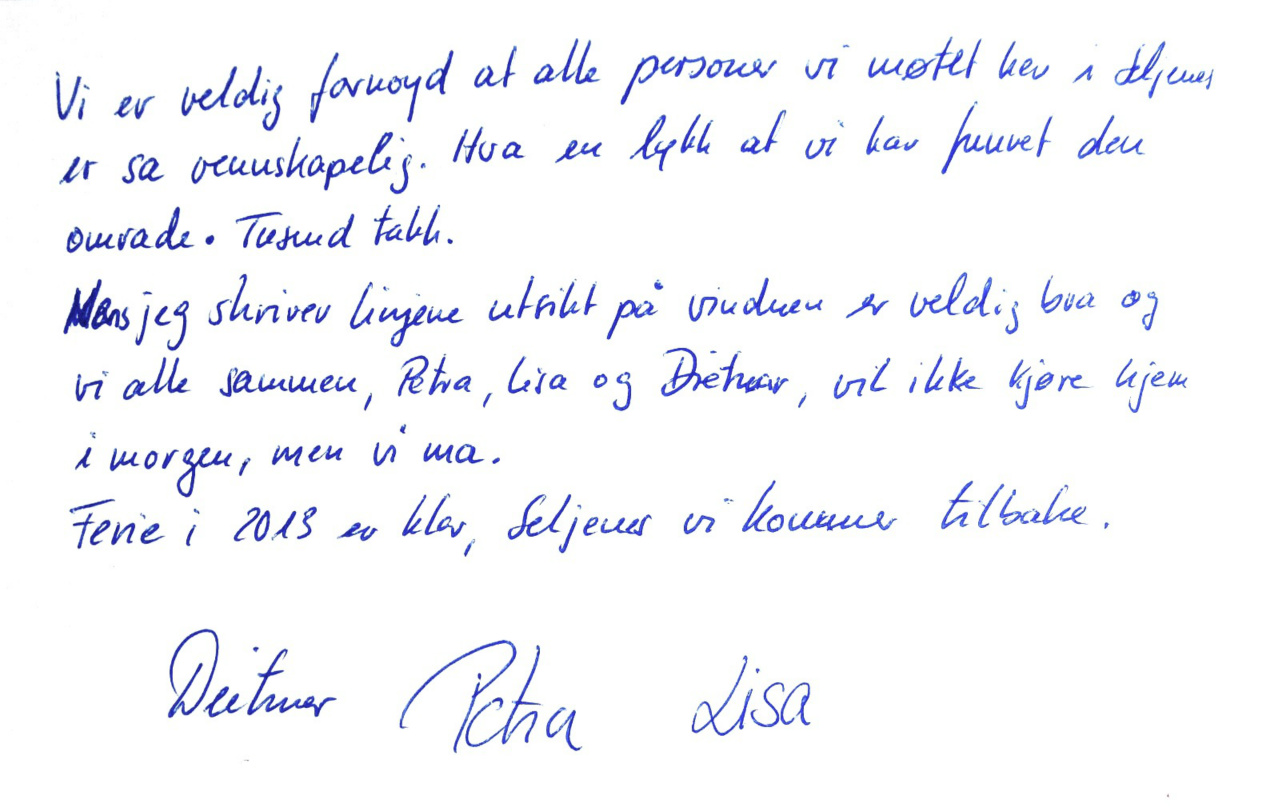 Vi er veldig fornoyd at alle personer vi møtet her i Seljenes
er sa vennskapelig. Hva en lykk at vi har funnet den
omrade. Tusend takk.
Mens jeg skriver linjene utsikt på vinduen er veldig bra og
vi alle sammen, Petra, Lisa og Dietmar, vil ikke kjøre hjem
i morgen, men vi ma.
Ferie i 2013 er klar, Seljenes vi kommer tilbake.
Dietmar Petra Lisa